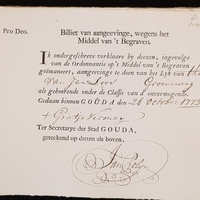 Pro Deo.
Billiet van aangeevinge, wegens het
Middel van 't Begraven.
Ik ondergeschreve verklaare by deezen, ingevolge
van de Ordonnantie op 't Middel van 't Begraven
geëmaneert, aangevinge te doen van het Lyk van
van Jan Loor Groeneweg
als gehoorende onder de Classis van d'onvermogende.
Gedaan binnen GOUDA, den 28 October 1773
Ter Secretarye der Stad GOUDA,
geteekend op datum als boven.